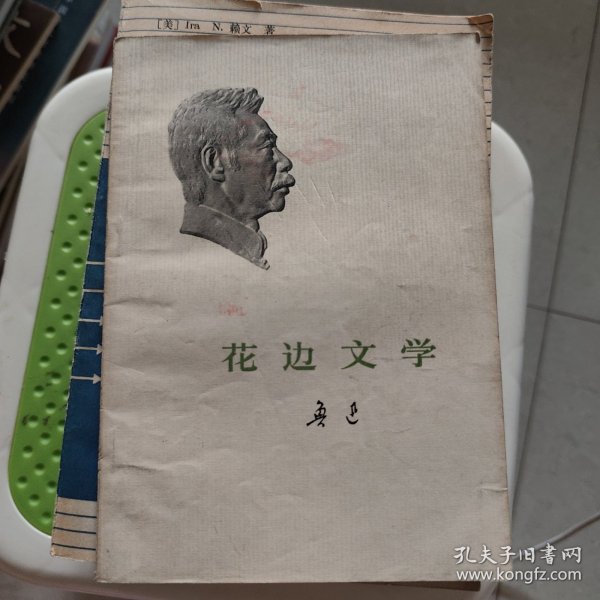 [美] Ira N. 赖文 著
花边文学
鲁迅
孔夫子旧书网
www.kongfz.com